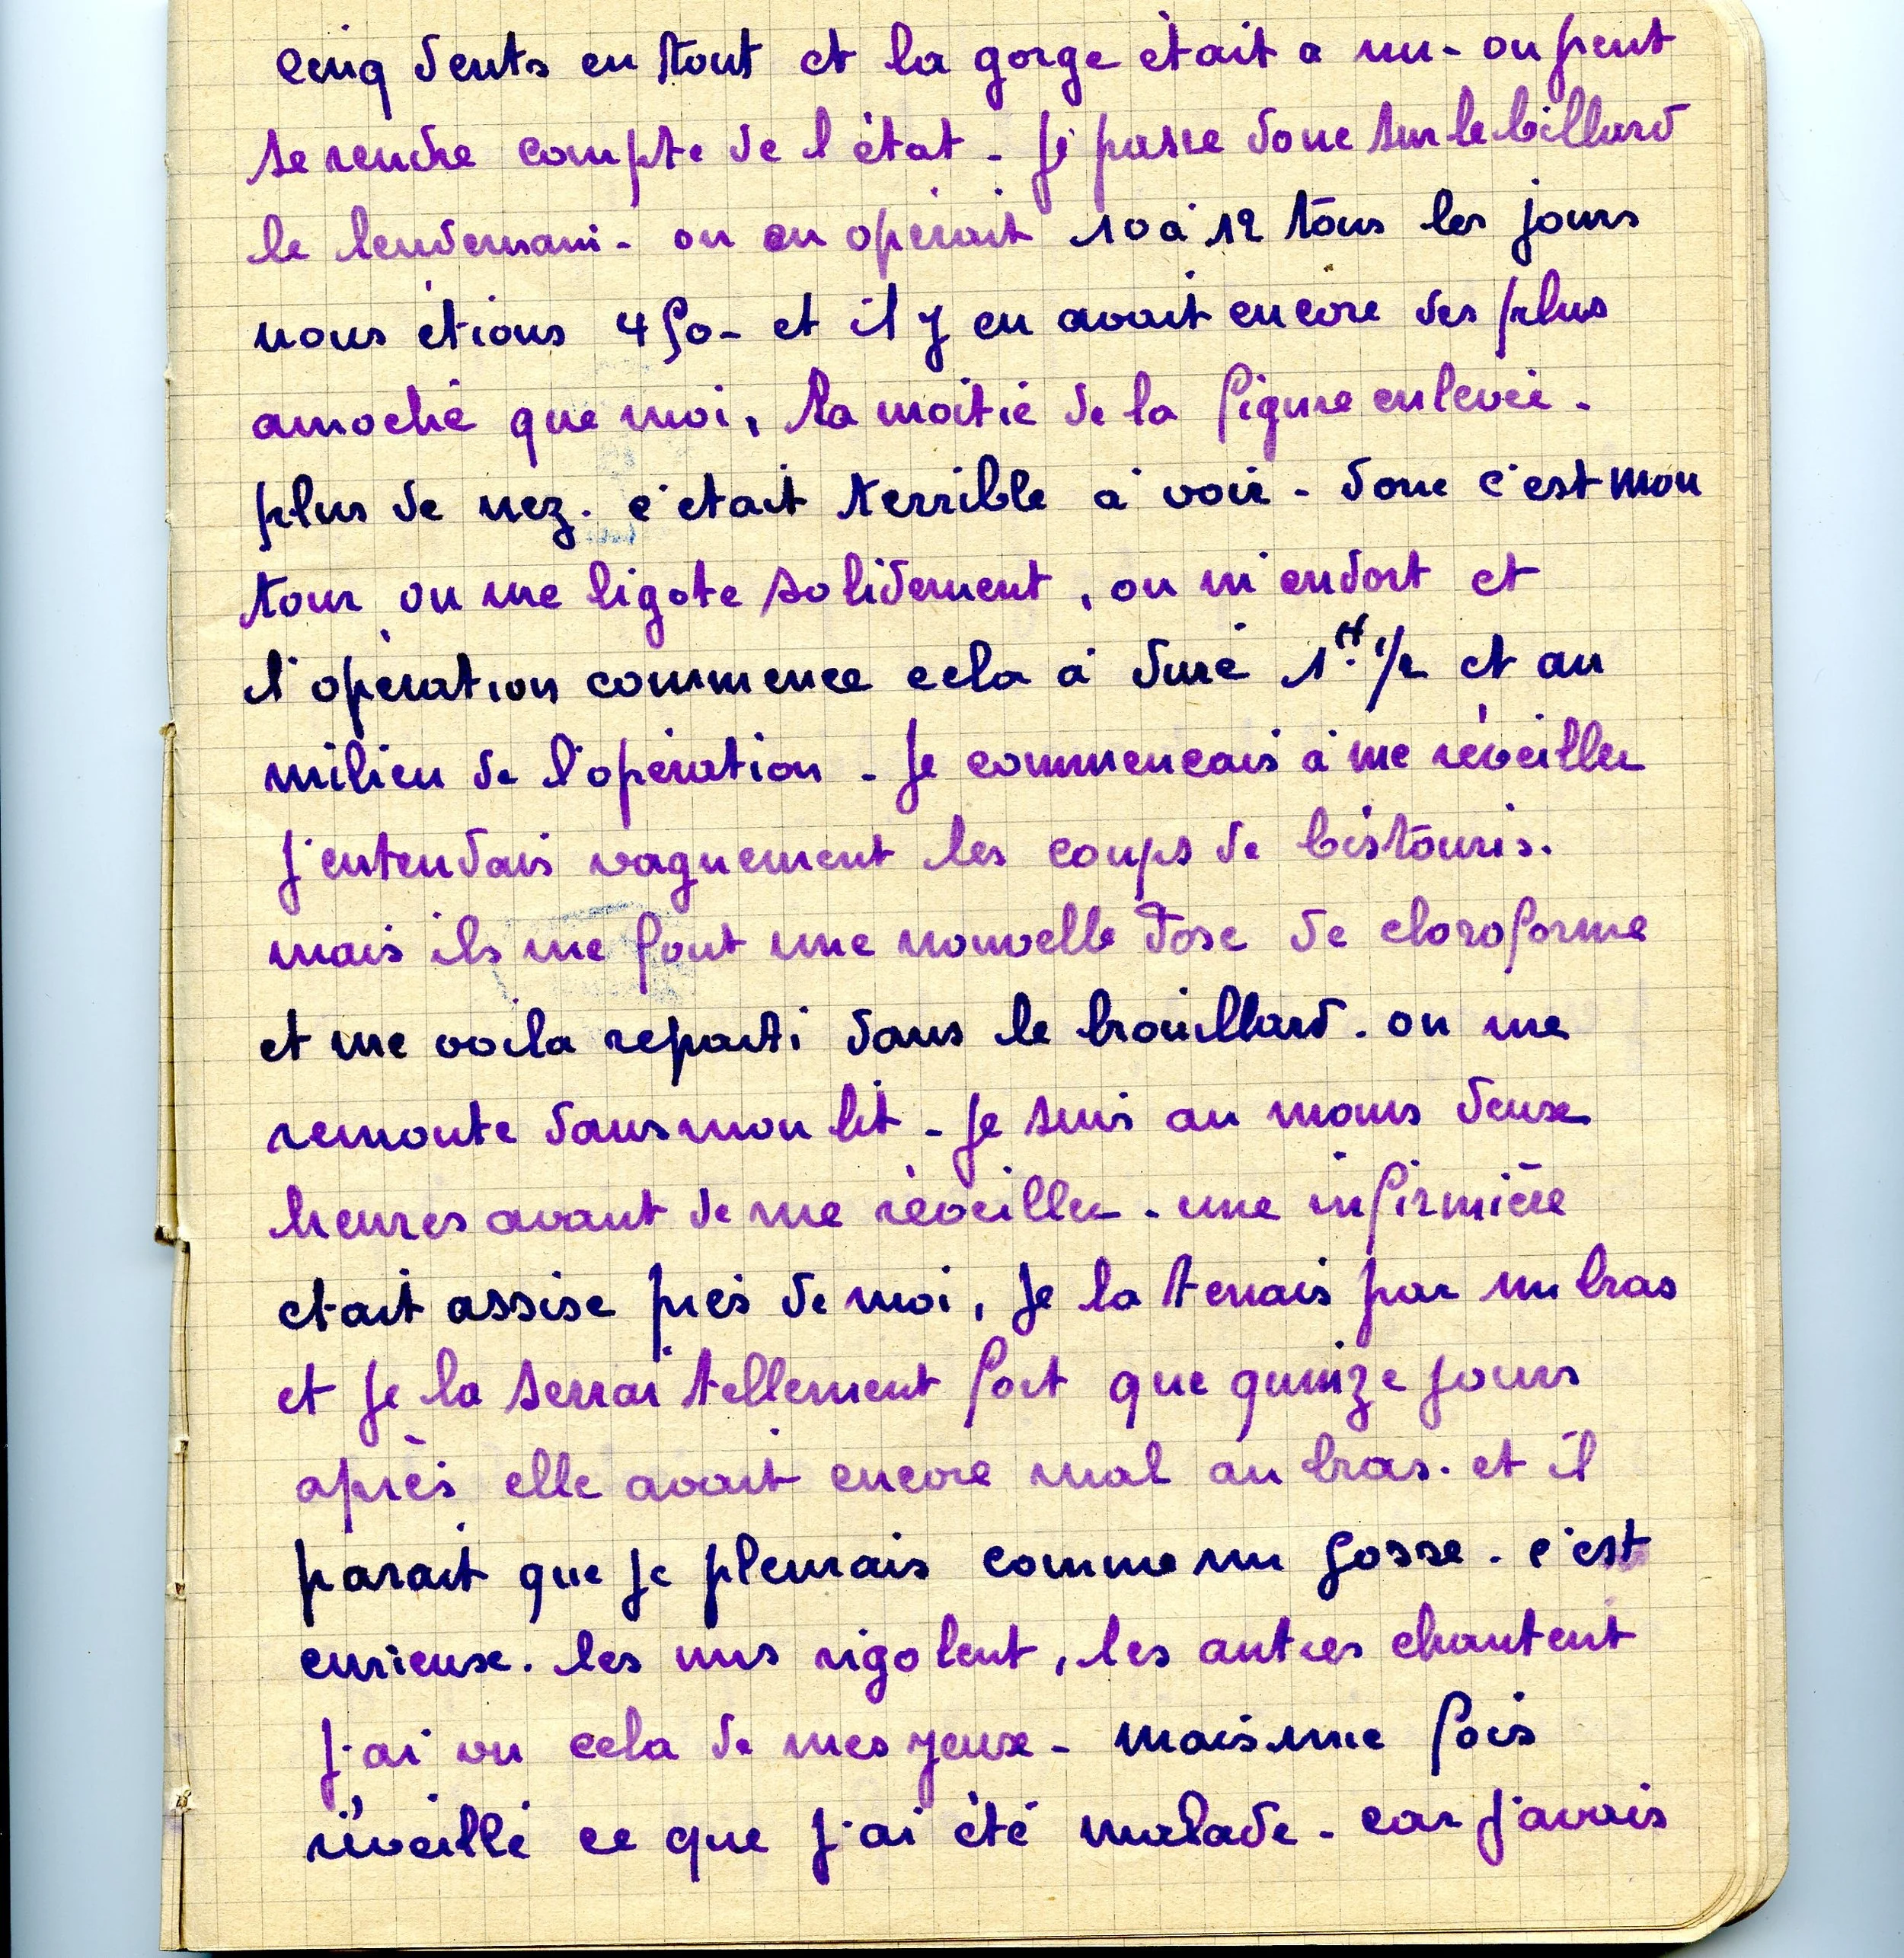 cinq dents en tout et la gorge était a nu - on peut
se rendre compte de l'état - je passe donc sur le billard
le lendemain - on en opérait 10 à 12 tous les jours
nous étions 450 - et il y en avait encore des plus
amoché que moi, la moitié de la figure enlevée -
plus de nez. c'était terrible à voir - donc c'est mon
tour on me ligote solidement, on m'endort et
l'opération commence cela à duré 1H 1/2 et au
milieu de l'opération - Je commencais à me réveiller
J'entendais vaguement les coups de bistouris.
mais ils me font une nouvelle dose de cloroforme
et me voila reparti dans le brouillard. on me
remonte dans mon lit - Je suis au moins deux
heures avant de me réveiller - une infirmière
était assise près de moi, Je la tenais par un bras
et Je la serrai tellement fort que quinze jours
après elle avait encore mal au bras. et il
parait que Je pleurais comme un gosse. c'est
curieux. les uns rigolent, les autres chantent
J'ai vu cela de mes yeux - mais une fois
réveillé ce que J'ai été malade - car J'avais